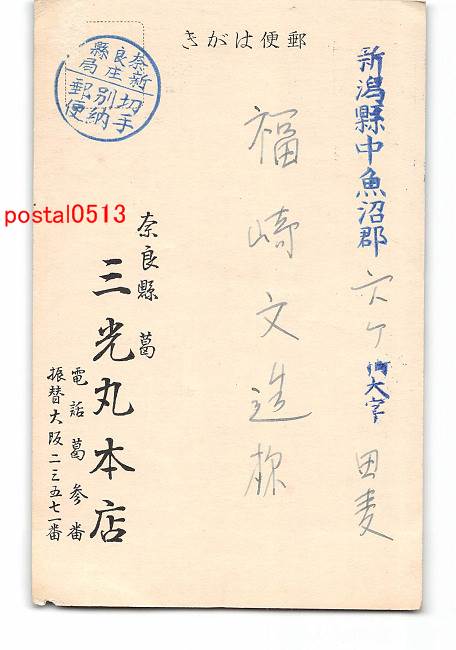 郵便はがき
新潟縣中魚沼郡六ケ村大字田麦
福崎文造様
奈良縣葛
三光丸本店
電話葛参番
振替大阪二三五七一番
奈良縣
新庄局
切手別納郵便
postal0513